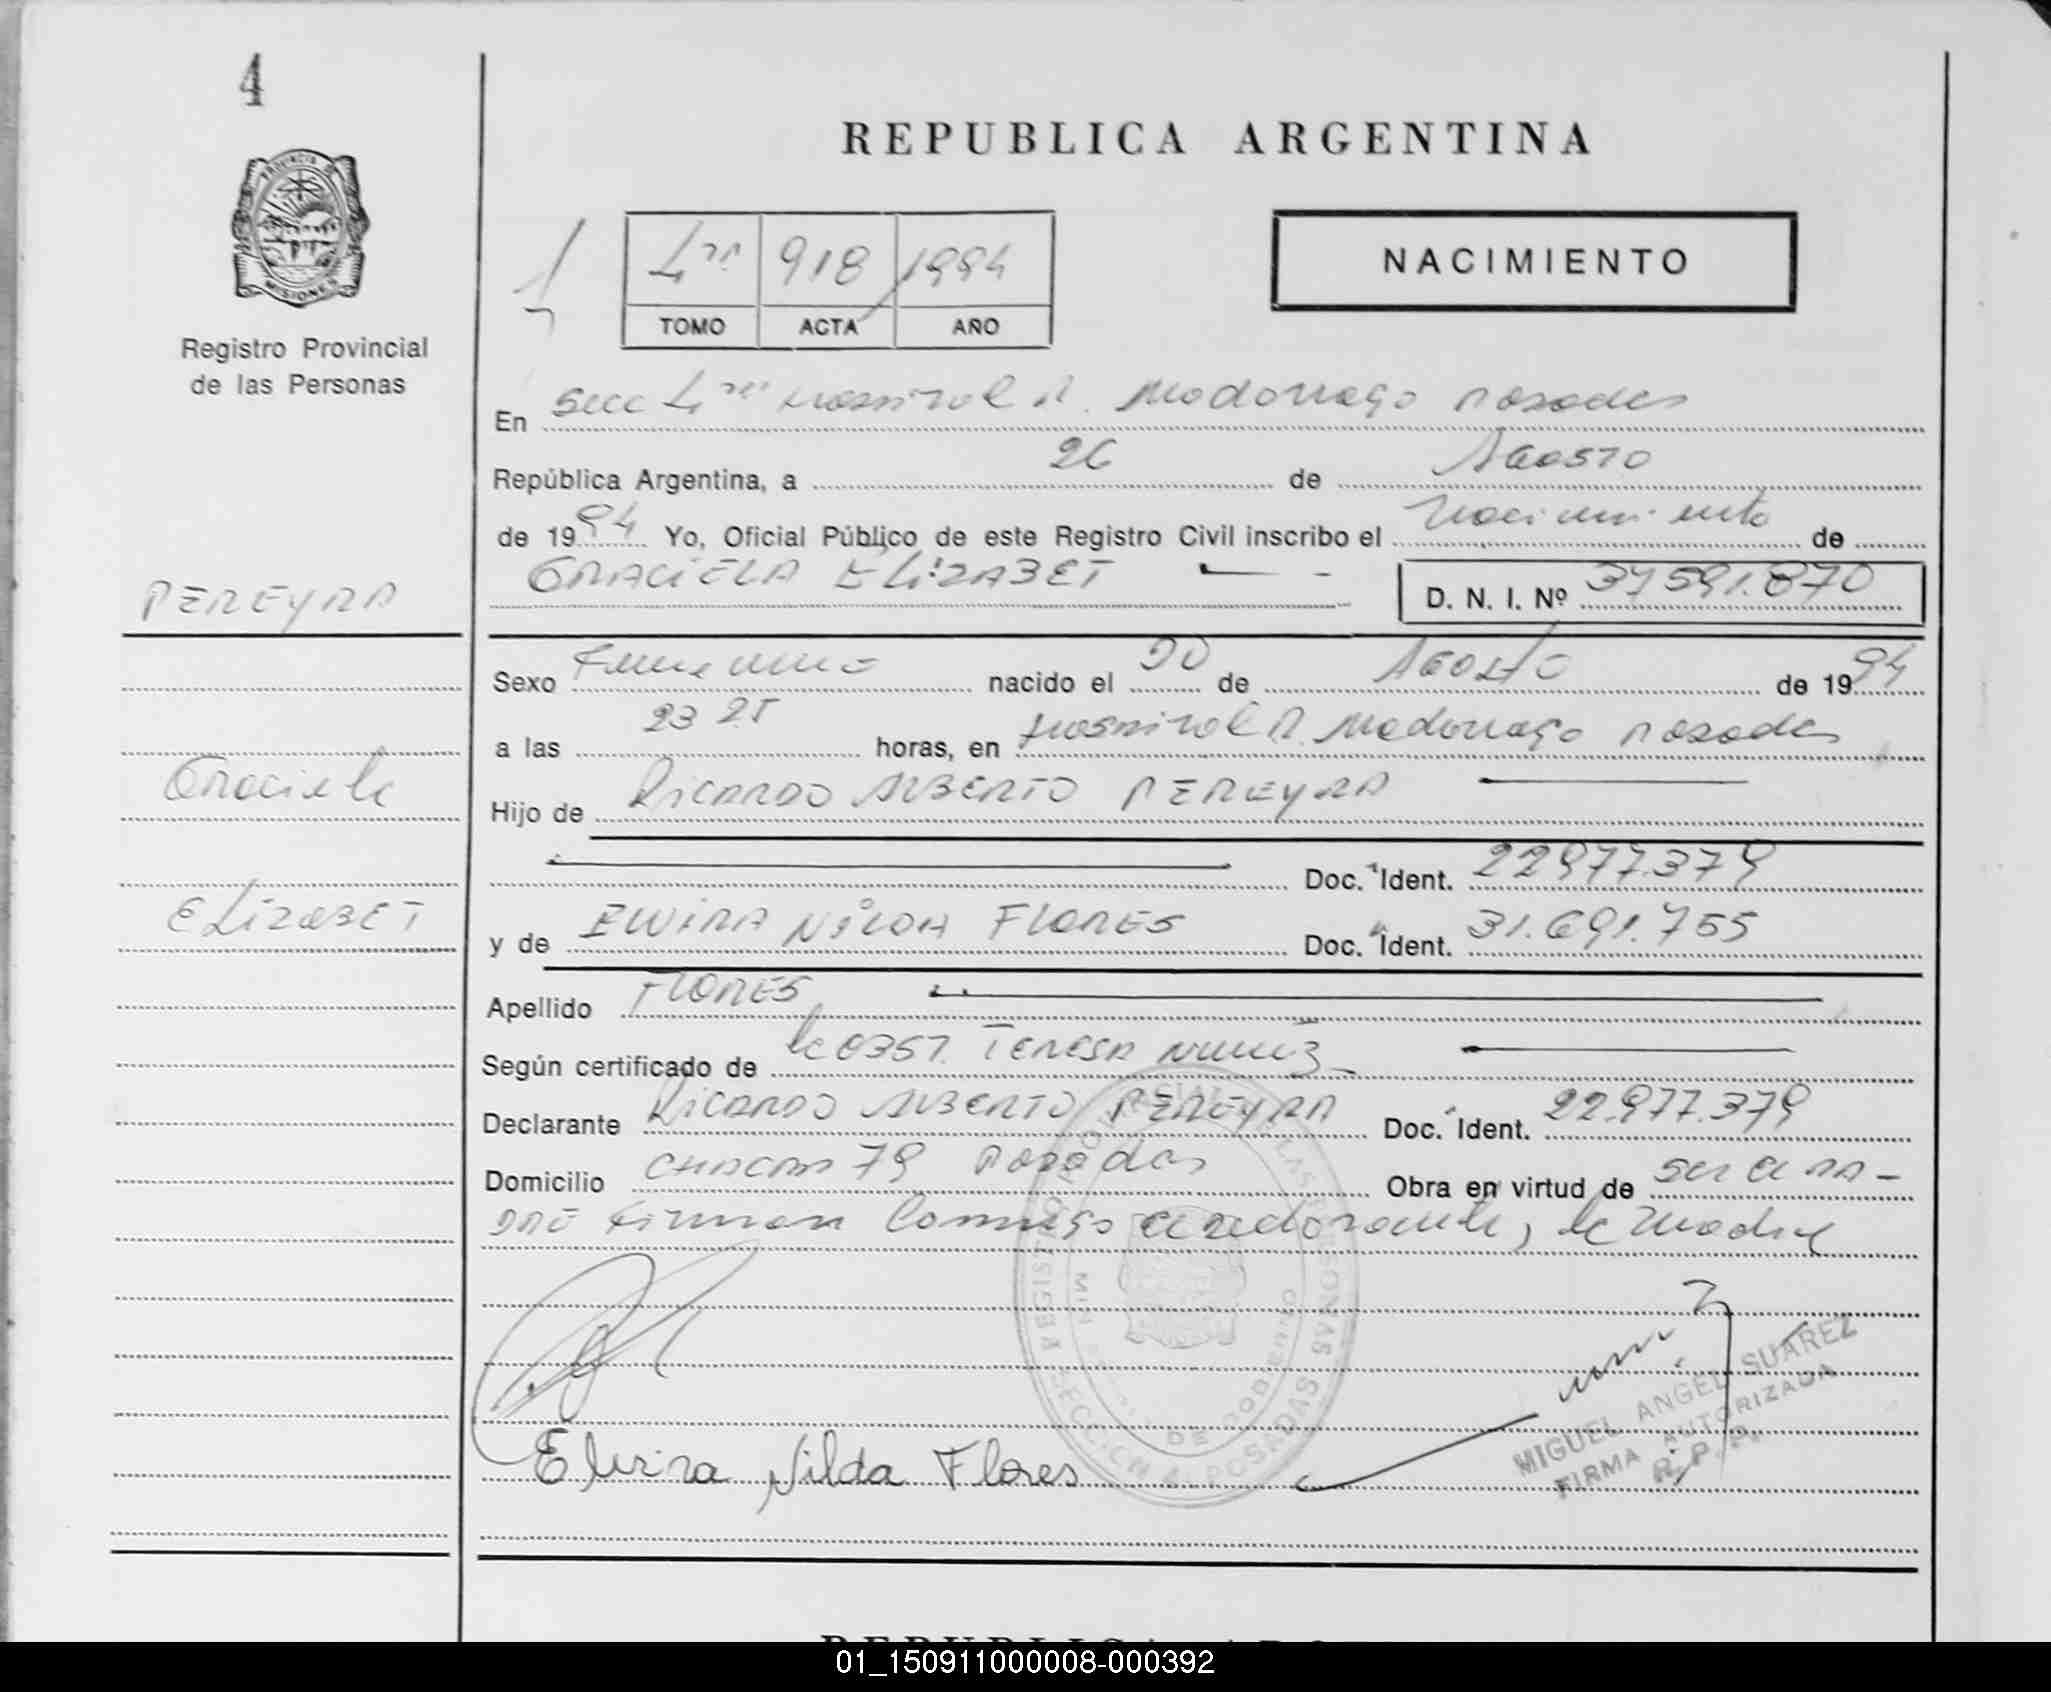 4
REPUBLICA ARGENTINA
PROVINCIA DE
MISIONES
Registro Provincial
de las Personas
918 1994
TOMO ACTA AÑO
NACIMIENTO
En Secc Hospital R. Madorriaga Posadas
República Argentina, a 26 de AGOSTO
de 1994 Yo, Oficial Público de este Registro Civil inscribo el Nacimiento de
GRACIELA ELIZABET D. N. I. Nº
PEREYRA
Sexo Femenino nacido el de AGOSTO de 1994
a las 23 25 horas, en Hospital R. Madorriaga Posadas
Graciela
Hijo de RICARDO ALBERTO PEREYRA
Doc. Ident. 22977.379
ELIZABET
y de ELVIRA NILDA FLORES Doc. Ident. 31.691.755
Apellido FLORES
Según certificado de TERESA
Declarante RICARDO ALBERTO PEREYRA Doc. Ident. 22.977.379
Domicilio CHACRA 79 Posadas Obra en virtud de ser el PA-
DRE Firman Conmigo el declarante, la Madre
REGISTRO PROVINCIAL DE LAS PERSONAS
SECCION POSADAS
DE GOBIERNO
MIGUEL ANGEL SUAREZ
FIRMA AUTORIZADA
R.P.P.
Elvira Nilda Flores
01_150911000008-000392